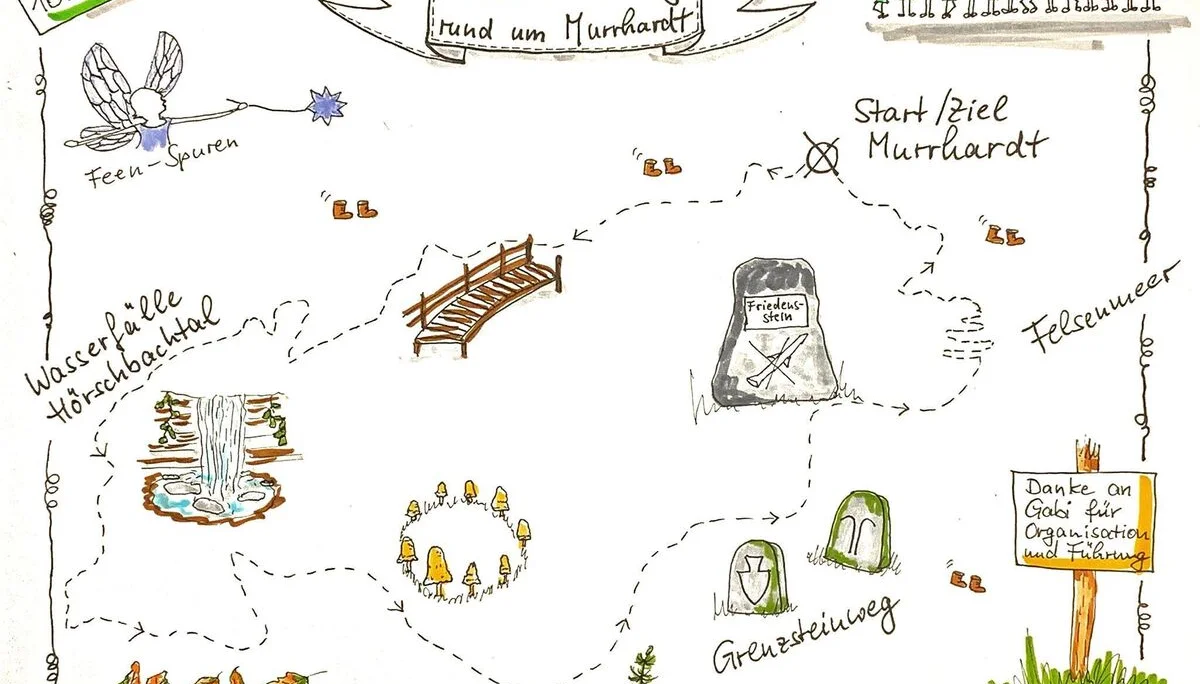 rund um Murrhardt
Feen-Spuren
Start/Ziel
Murrhardt
Wasserfälle
Hörschbachtal
Friedens-
stein
Felsenmeer
Danke an
Gabi für
Organisation
und Führung
Grenzsteinweg